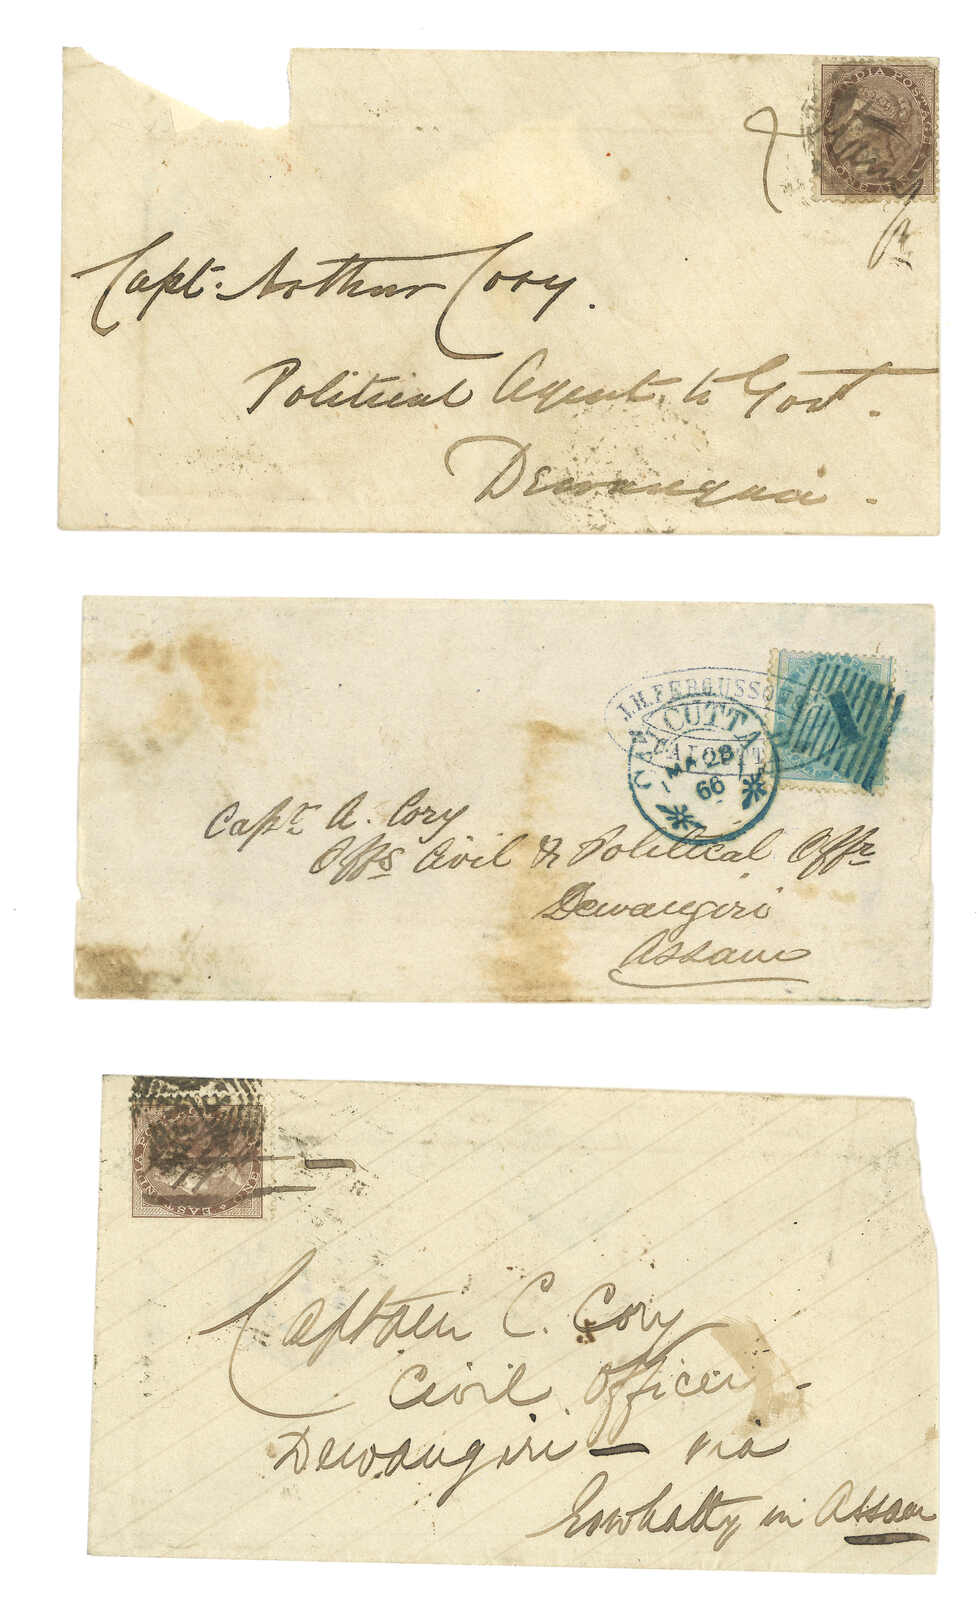 INDIA POSTAGE
Capt. Arthur Cory.
Political Agent to Govt.
Dewangiri.
J.H.FERGUSSON
CALCUTTA
MA 28
66
Captn A. Cory
Offg Civil & Political Offr
Dewangiri
Assam
EAST INDIA
Captain C. Cory
Civil Officer -
Dewangiri — via
Gowhatty in Assam